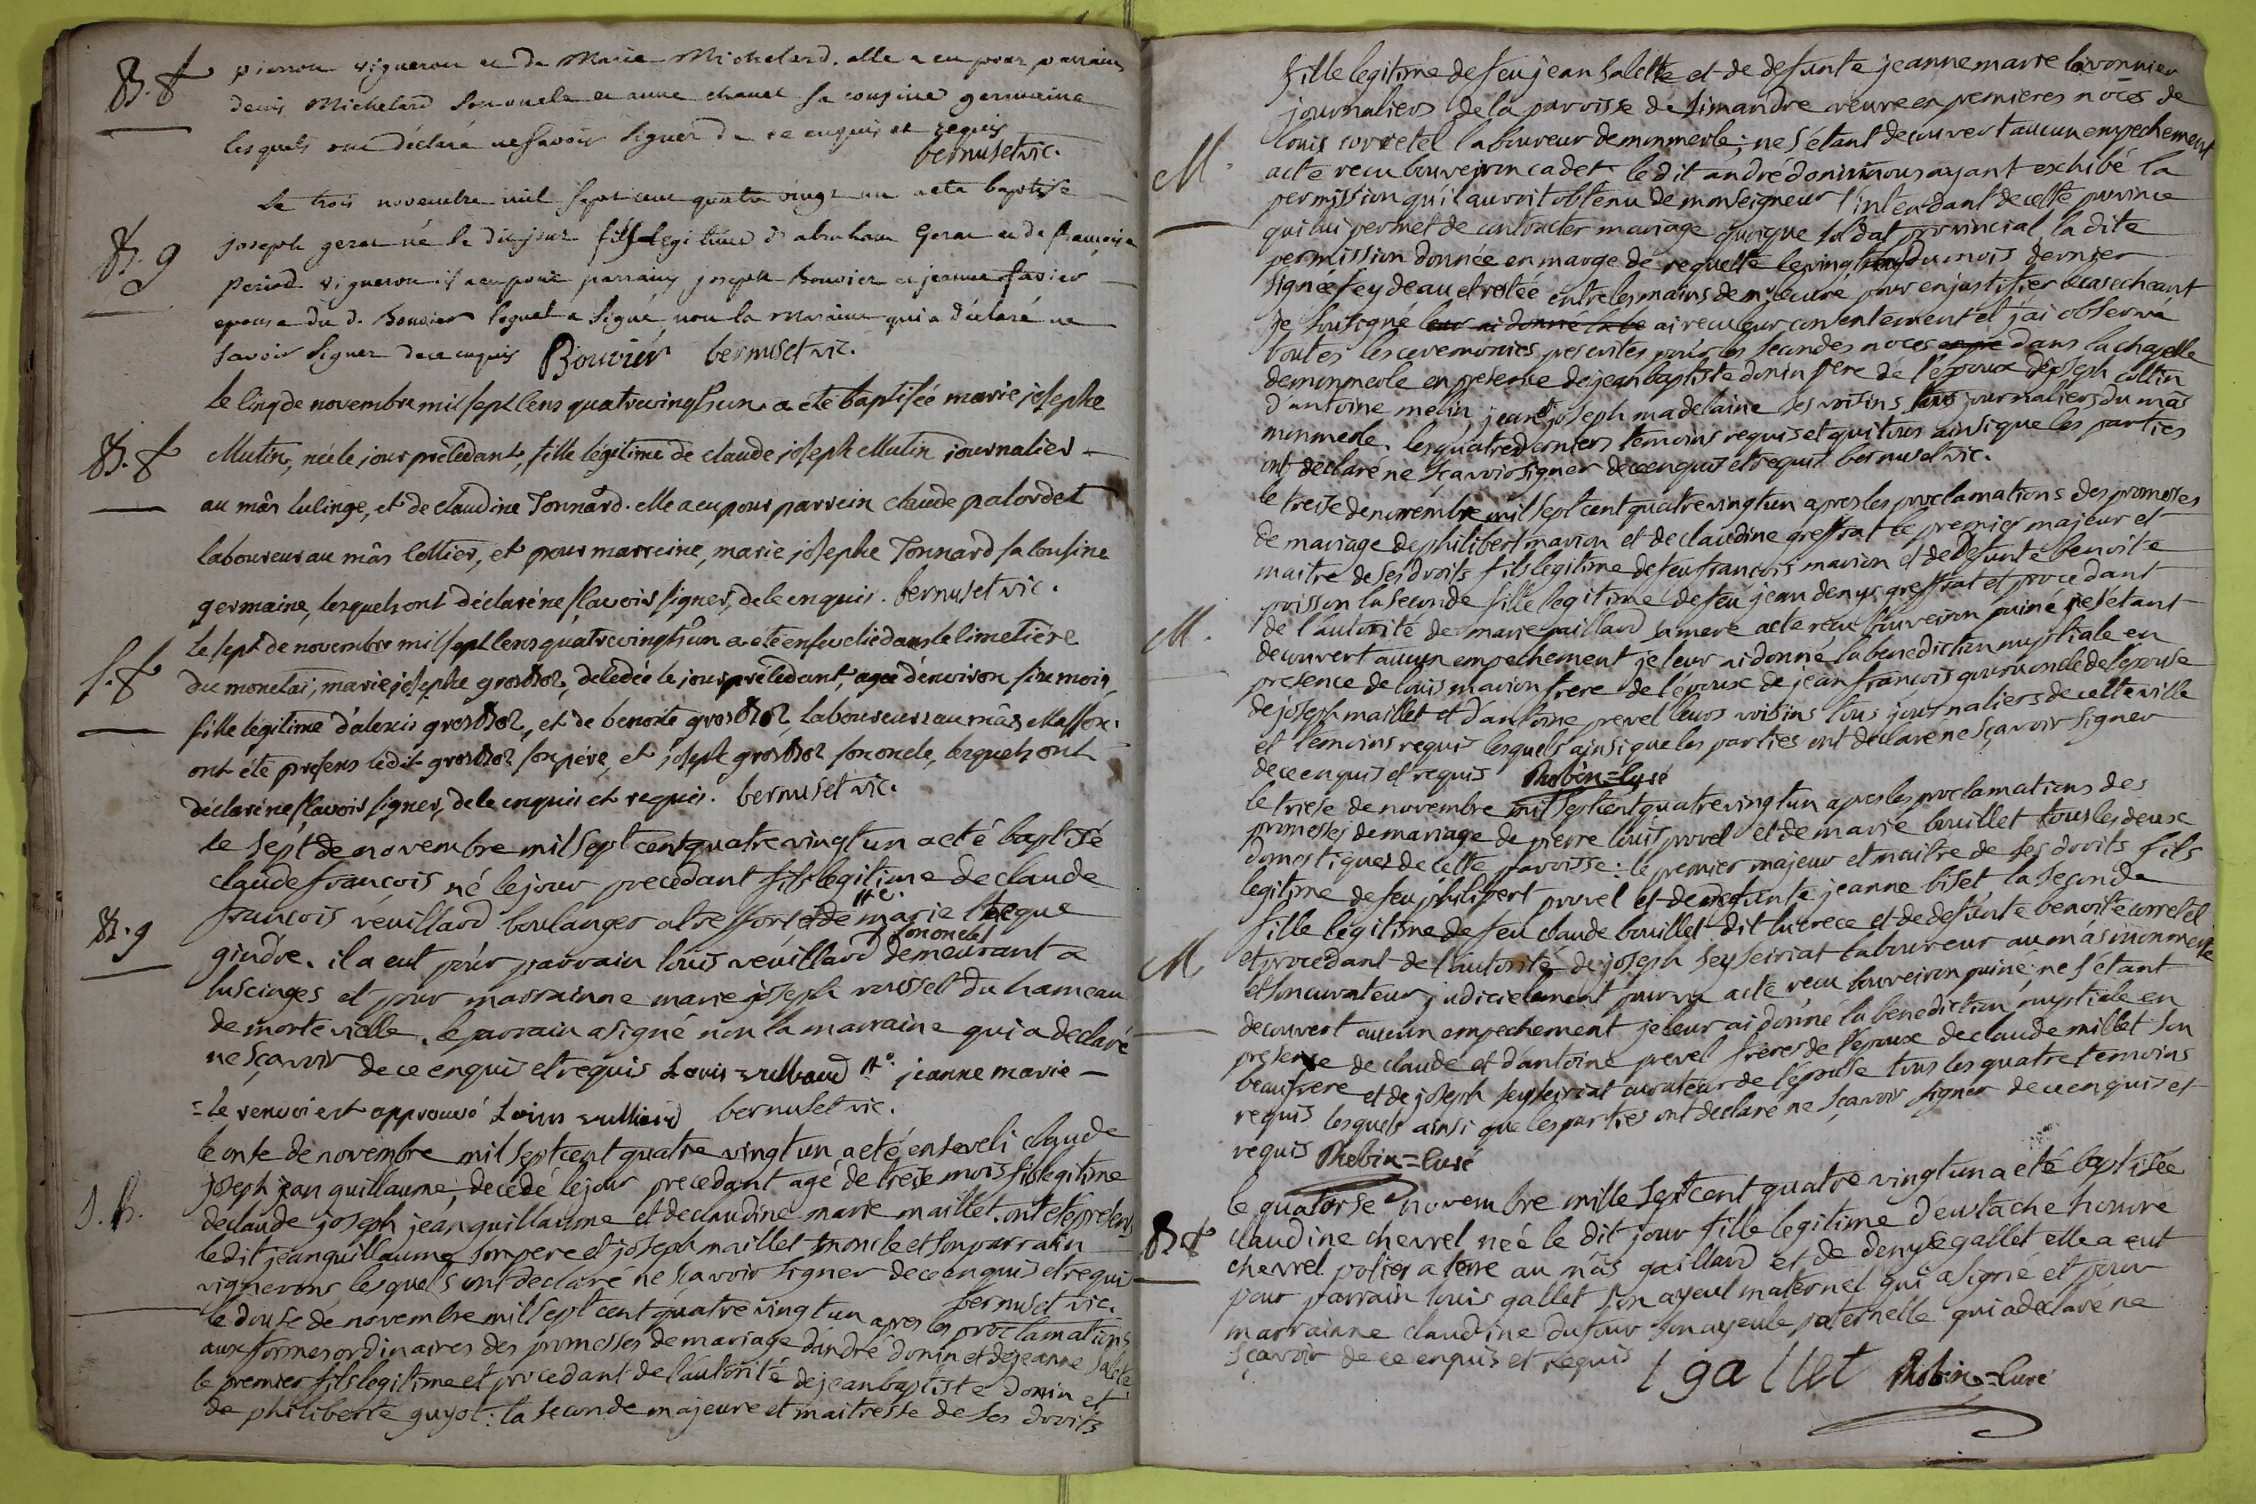 B. f
pierron vigneron et de Marie Michelard. elle a eu pour parrain
denis Michelard son oncle et anne chanel sa cousine germaine
lesquels ont déclaré ne savoir signer de ce enquis et requis
bernuset vic.
Le trois novembre mil sept cent quatre vingt un a été baptisé
B. g
joseph gerac né le dit jour fils legitime d'abraham Gerac et de françoise
Period vigneron il a eu pour parrain joseph Bouvier et jeanne favier
epouse du d. Bouvier lequel a signé non la maraine qui a déclaré ne
savoir signer de ce enquis Bouvier bernuset vic.
le cinq de novembre mil sept cens quatrevingts un a été baptisée marie josephe
B. f
Mutin, née le jour précédant, fille légitime de claude joseph Mutin journalier
au mâs lulinge, et de claudine Tonnard. elle a eu pour parrein claude palordet
laboureur au mâs collier, et pour marreine, marie josephe Tonnard sa cousine
germaine, lesquels ont déclaré ne sçavoir signer, de ce enquis. bernuset vic.
le sept de novembre mil sept cens quatrevingts un a été ensevelie dans le cimetière
S. f
du monelai, marie josephe grosbos, décédée le jour précédant, agée d'environ six mois,
fille légitime d'alexis grosbos, et de benoite grosbos, laboureurs au mâs
ont été présens ledit grosbos son père, et joseph grosbos son oncle, lesquels ont
déclaré ne sçavoir signer, de ce enquis et requis. bernuset vic.
le sept de novembre mil sept cent quatre vingt un a eté baptisé
claude francois né le jour precedant fils legitime de claude
B. g
francois veuillard boulanger de marie
gindre. il a eut pour parrain louis veuillard son oncle demeurant a
luscinges et pour marrainne marie joseph roussel du hameau
de mortevielle. le parrain a signé non la marraine qui a declaré
ne sçavoir de ce enquis et requis Louis vulliaud jeanne marie
= le renvoi est approuvé Louis vulliaud bernuset vic.
le onse de novembre mil sept cent quatre vingt un a eté enseveli claude
joseph jean guillaume, decedé le jour precedant agé de treise mois fils legitime
de claude joseph jean guillaume et de claudine marie maillet. ont eté presens
le dit jean guillaume son pere et joseph maillet son oncle et son parrain
vignerons lesquels ont declaré ne sçavoir signer de ce enquis et requis
bernuset vic.
le douse de novembre mil sept cent quatre vingt un apres les proclamations
aux formes ordinaires des promesses de mariage d'andré donin et de jeanne salete
le premier fils legitime et procedant de l'autorité de jean baptiste donin et
de philiberte guyot : la seconde majeure et maitresse de ses droits
fille legitime de feu jean salette et de defunte jeanne marie lavonnier
journaliers de la paroisse de simandre veuve en premieres noces de
louis corretel laboureur de monmerle ; ne s'étant decouvert aucun empechement
M.
acte recu bouveiron cadet le dit andré donin nous ayant exhibé la
permission qu'il auroit obtenu de monseigneur l'intendant de cette province
qui lui permet de contracter mariage quoique soldat provincial la dite
permission donnée en marge de requette le vingt du mois dernier
signée feydeau et restée entre les mains de mr le curé pour en justifier le cas echeant
je soussigné leur ai donné la be ai recu leur consentement et j'ai observé
toutes les ceremonies prescrites pour les secondes noces dans la chapelle
de monmerle en presence de jean baptiste donin pere de l'epoux de joseph collin
d'antoine melin jean et joseph madelaine ses voisins tous journaliers du mas
monmerle. les quatre derniers temoins requis et qui tous ainsi que les parties
ont declaré ne sçavoir signer de ce enquis et requis bernuset vic.
le treise de novembre mil sept cent quatre vingt un apres les proclamations des promesses
de mariage de philibert marion et de claudine greffrat le premier majeur et
maitre de ses droits fils legitime de feu francois marion et de defunte benoite
poisson la seconde fille legitime de feu jean denys greffrat et procedant
M.
de l'autorité de marie paillard sa mere acte recu bouveiron puiné ne s'étant
decouvert aucun empechement je leur ai donné la benediction nuptiale en
presence de louis marion frere de l'époux de jean francois oncle de l'epouse
de joseph maillet et d'antoine prevel leurs voisins tous journaliers de cette ville
et temoins requis lesquels ainsi que les parties ont declaré ne sçavoir signer
de ce enquis et requis Robin = curé
le treise de novembre mil sept cent quatre vingt un apres les proclamations des
promesses de mariage de pierre louis prevel et de marie bouillet tous les deux
domestiques de cette paroisse : le premier majeur et maitre de ses droits fils
legitime de feu philibert prevel et de defunte jeanne biset la seconde
fille legitime de feu claude bouillet dit lucrece et de defunte benoite corretel
M
et procedant de l'autorité de joseph seyseiriat laboureur au mas monmerle
et son curateur judiciellement pourvu acte recu bouveiron puiné ; ne s'étant
decouvert aucun empechement je leur ai donné la benediction nuptiale en
presence de claude et d'antoine prevel freres de l'epoux de claude millet son
beaufrere et de joseph seyseiriat curateur de l'epouse tous les quatre temoins
requis lesquels ainsi que les parties ont declaré ne sçavoir signer de ce enquis et
requis Robin = curé
le quatorse novembre mille sept cent quatre vingt un a eté baptisée
B. f
claudine chevrel neé le dit jour fille legitime d'eustache honoré
chevrel potier a terre au mâs gaillard et de denyse gallet elle a eut
pour parrain louis gallet son ayeul maternel qui a signé et pour
marrainne claudine dufour son ayeule paternelle qui a declaré ne
sçavoir de ce enquis et requis l gallet Robin = curé
S. h.